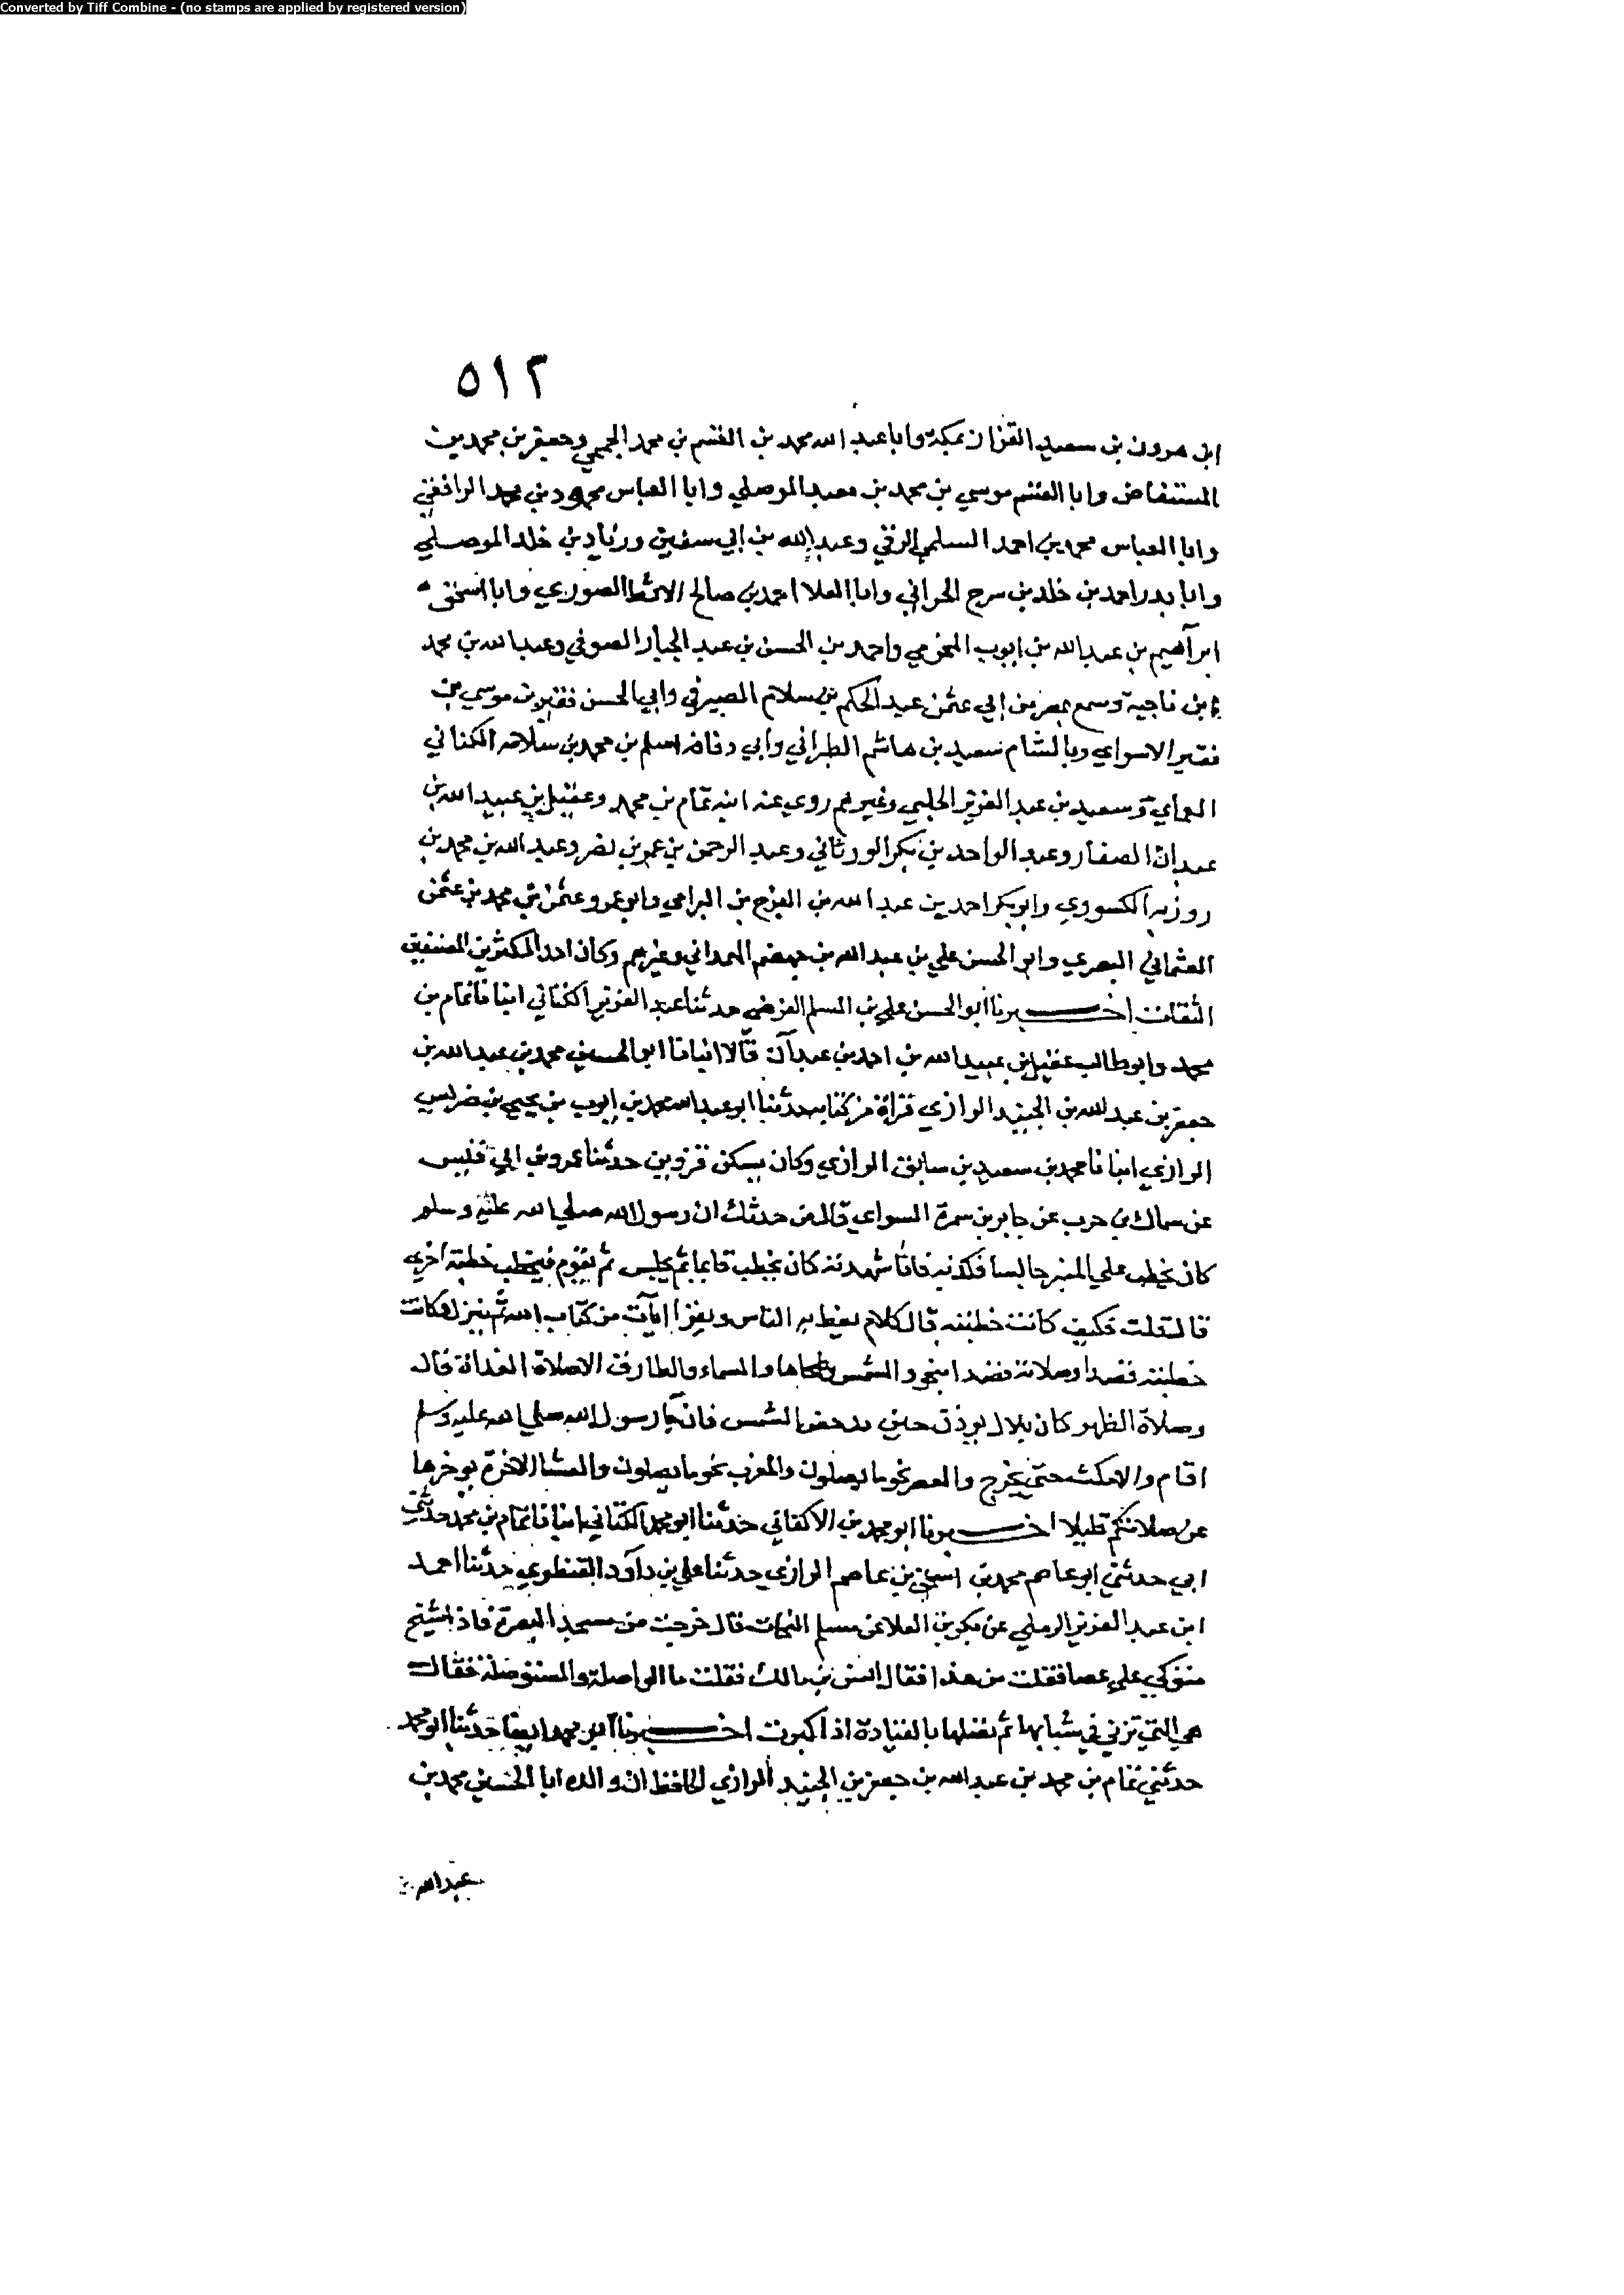 Converted by Tiff Combine - (no stamps are applied by registered version)
٥١٢
ابن هرون بن سعيد القزاز بمكة وابا عبد الله محمد بن القسم بن محمد الجمحي وجعفر بن محمد بن
المستفاض وابا القسم موسي بن محمد بن معبد الموصلي وابا العباس محمود بن محمد الرافقي
وابا العباس محمد بن احمد السلمي الرقي وعبد الله بن ابي سفين وزياد بن خلد الموصلي
وابا بدر احمد بن خلد بن سرح الحراني وابا العلا احمد بن صالح الاثط الصوري وابا اسحق
ابراهيم بن عبد الله بن ايوب المخرمي واحمد بن الحسن بن عبد الجبار الصوفي وعبد الله بن محمد
ابن ناجية وسمع بمصر من ابي عثمن عبد الحكم بن سلام الصيرفي وابي الحسن فقير بن موسي بن
فقير الاسواي وبالشام سعيد بن هاشم الطبراني وابي دفافه اسلم بن محمد بن سلامه الكناني
العماي وسعيد بن عبد العزيز الحلبي وغيرهم روي عنه ابنه تمام بن محمد وعقيل بن عبيد الله بن
عبدان الصفار وعبد الواحد بن بكر الورثاني وعبد الرحمن بن عمر بن نصر وعبد الله بن محمد بن
روزبه الكسووي وابو بكر احمد بن عبد الله بن الفرج بن البرامي وابو عمرو عثمن بن محمد بن عثمن
العثماني البصري وابو الحسن علي بن عبد الله بن جهضم الهمداني وغيرهم وكان احد المكثرين المصنفين
الثقات اخبرنا ابو الحسن علي بن المسلم الفرضي حدثنا عبد العزيز الكتاني انبانا تمام بن
محمد وابو طالب عقيل بن عبيد الله بن احمد بن عبدان قالا انبانا ابو الحسين محمد بن عبد الله بن
جعفر بن عبد الله بن الجنيد الرازي قراة من كتابه حدثنا ابو عبد الله محمد بن ايوب بن يحيي بن ضريس
الرازي انبانا محمد بن سعيد بن سابق الرازي وكان يسكن قزوين حدثنا عمرو بن ابي قيس
عن سماك بن حرب عن جابر بن سمرة السواي قال من حدثك ان رسول الله صلي الله عليه وسلم
كان يخطب علي المنبر جالسا فكذبه فانا شهدته كان يخطب قايما ثم يجلس ثم يقوم فيخطب خطبة اخري
قال قلت فكيف كانت خطبته قال كلام يعظ به الناس ويقرا ايات من كتاب الله ثم ينزل فكانت
خطبته قصدا وصلاته قصدا بنحو والشمس وضحاها والسماء والطارق الا صلاة الغداة قال
وصلاة الظهر كان بلال يوذن حين تدحض الشمس فان جا رسول الله صلي الله عليه وسلم
اقام والا مكث حتي يخرج والعصر نحو ما يصلون والمغرب نحو ما يصلون والعشا الاخرة يوخرها
عن صلاتكم قليلا اخبرنا ابو محمد بن الاكفاني حدثنا ابو محمد الكتاني انبانا تمام بن محمد حدثني
ابي حدثني ابو عاصم محمد بن اسحق بن عاصم الرازي حدثنا علي بن داود القنطري حدثنا احمد
ابن عبد العزيز الرملي عن بكر بن العلا عن مسلم النحات قال خرجت من مسجد البصرة فاذا شيخ
متوكي علي عصا فقلت من هذا فقال انس بن مالك فقلت ما الواصلة والمستوصلة فقال
هي التي تزني في شبابها ثم تصلها بالقيادة اذا كبرت اخبرنا ابو محمد ايضا حدثنا ابو محمد
حدثني تمام بن محمد بن عبد الله بن جعفر بن الجنيد الرازي الحافظ ان والده ابا الحسين محمد بن
عبد الله بن